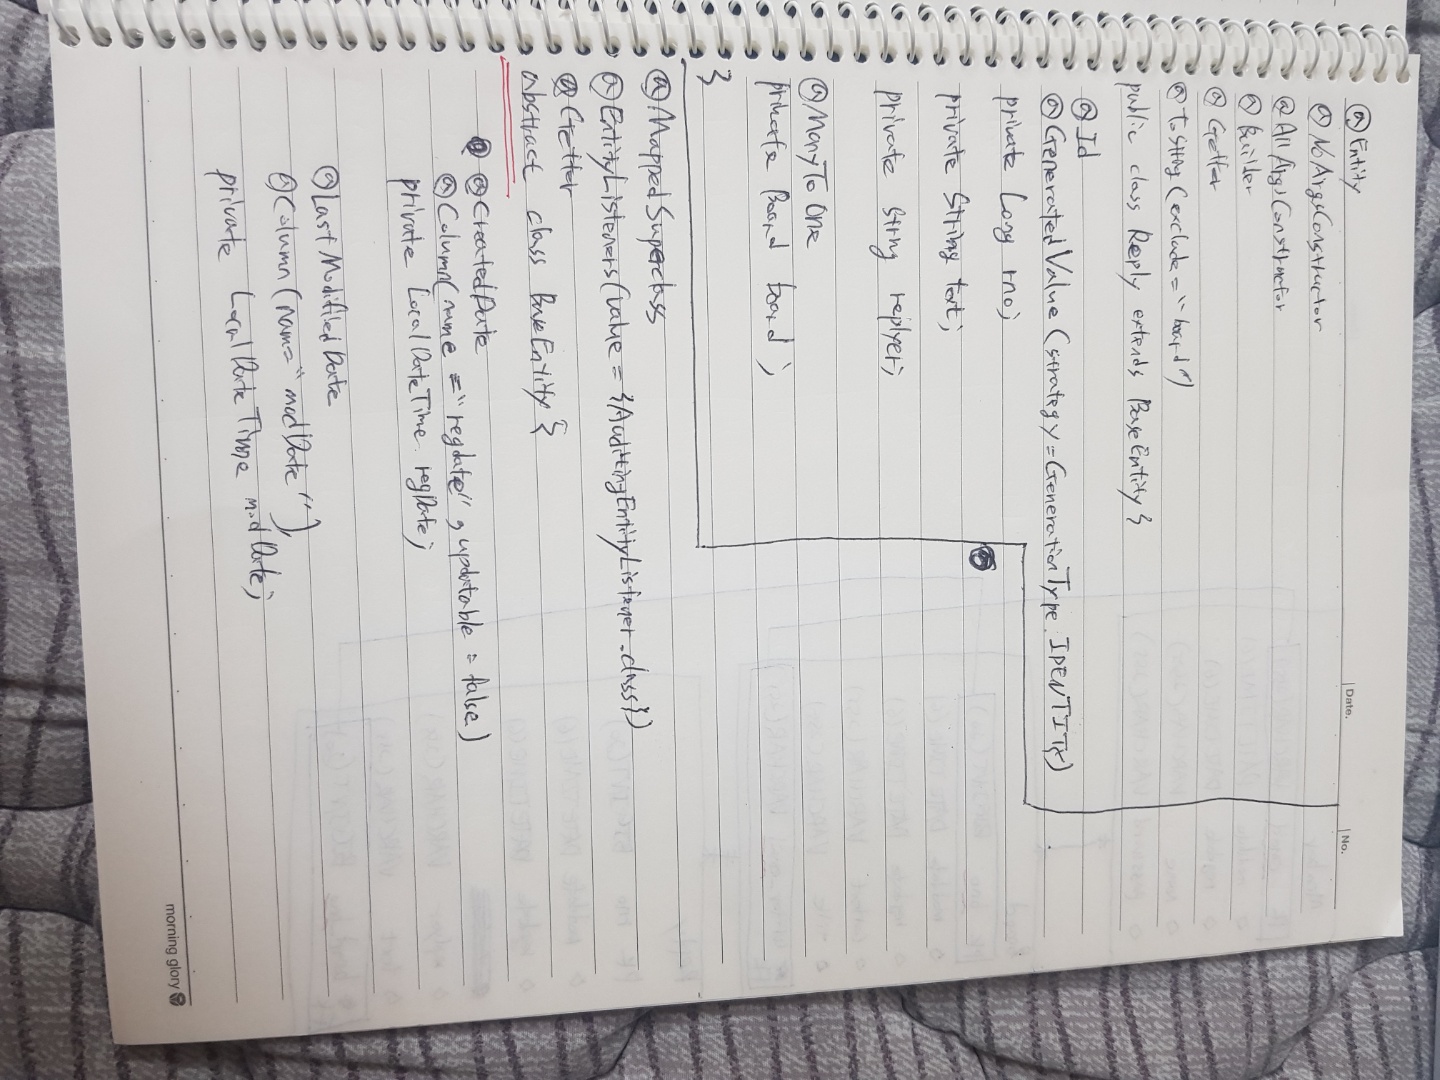 Date.
No.
@Entity
@NoArgsConstructor
@AllArgsConstructor
@Builder
@Getter
@ToString(exclude="board")
public class Reply extends BaseEntity {
@Id
@GeneratedValue (strategy=GenerationType.IDENTITY)
private Long rno;
private String text;
private String replyer;
@ManyToOne
private Board board;
}
@MappedSuperclass
@EntityListeners(value = {AuditingEntityListener.class})
@Getter
abstract class BaseEntity {
@CreatedDate
@Column(name = "regdate", updatable = false)
private LocalDateTime regDate;
@LastModifiedDate
@Column(name="modDate")
private LocalDateTime modDate;
morning glory